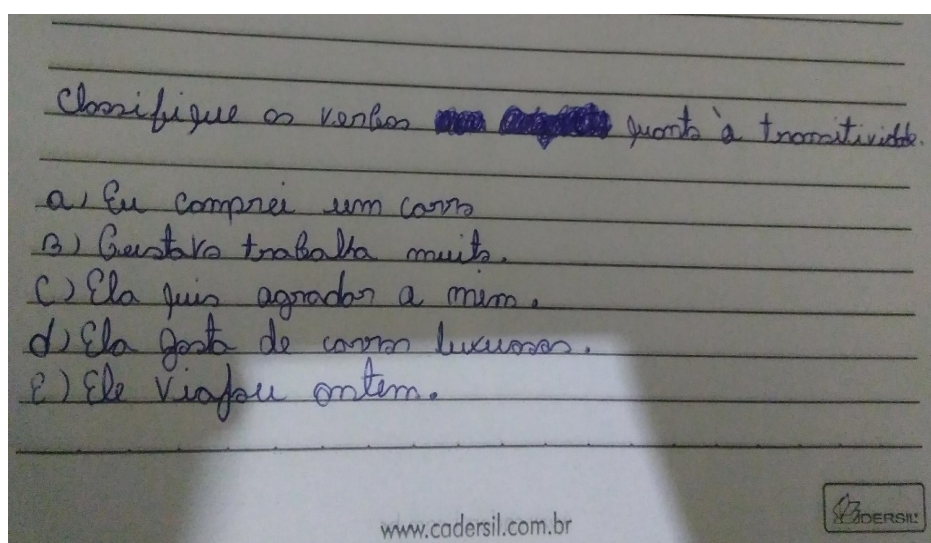 Classifique os verbos quanto à transitividade.
a) Eu comprei um carro
B) Gustavo trabalha muito.
C) Ela quis agradar a mim.
d) Ela gosta de carros luxuosos.
E) Ele viajou ontem.
www.cadersil.com.br
CADERSIL